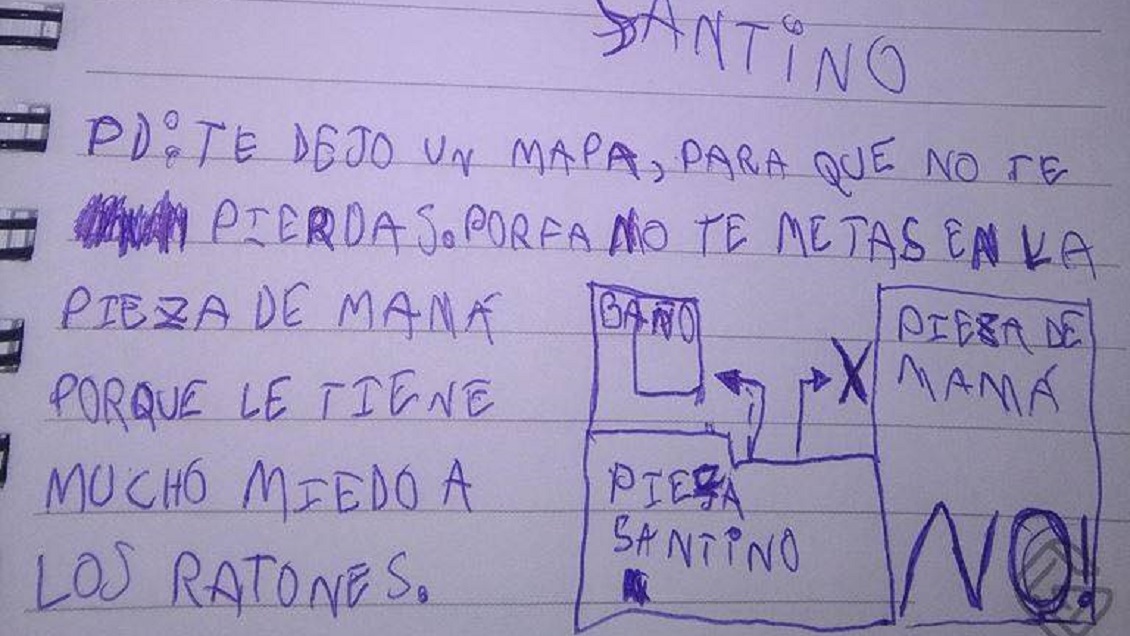 SANTiNO
PD: TE DEJO UN MAPA, PARA QUE NO TE
PIERDAS. PORFA NO TE METAS EN LA
PIEZA DE MAMÁ
PORQUE LE TIENE
MUCHO MIEDO A
LOS RATONES.
BAÑO
PIEZA DE
MAMÁ
PIEZA
SANTiNO
X
NO!